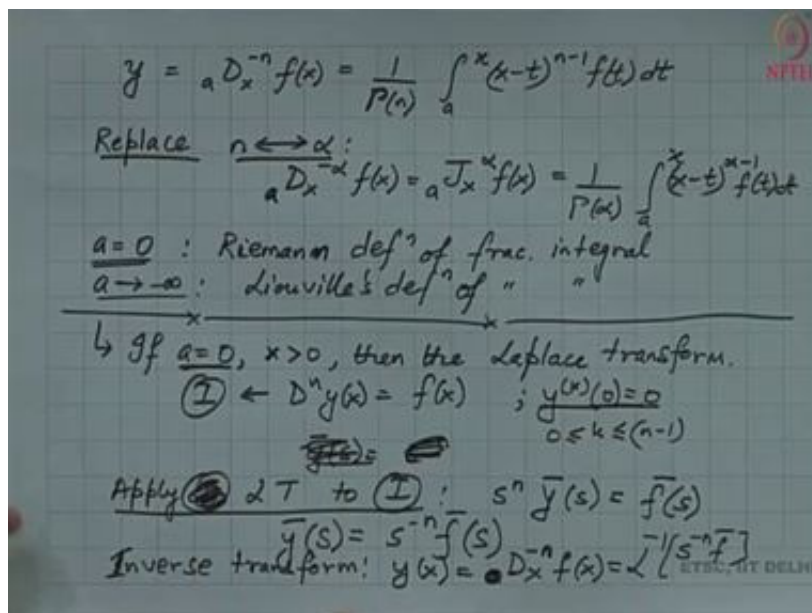 y = ₐDₓ⁻ⁿ f(x) = 1/Γ(n) ∫ₐˣ (x-t)ⁿ⁻¹ f(t) dt
NPTEL
Replace n ↔ α :
ₐDₓ^-α f(x) = ₐJₓ^α f(x) = 1/Γ(α) ∫ₐˣ (x-t)^α-1 f(t) dt
a = 0 : Riemann defⁿ of frac. integral
a → -∞ : Liouville's defⁿ of " "
↳ If a = 0, x > 0, then the Laplace transform.
Ⓘ ← Dⁿ y(x) = f(x) ; y^(k)(0) = 0
0 ≤ k ≤ (n-1)
Apply LT to Ⓘ : sⁿ ȳ(s) = f̄(s)
ȳ(s) = s⁻ⁿ f̄(s)
Inverse transform: y(x) = Dₓ⁻ⁿ f(x) = L⁻¹[s⁻ⁿ f̄]
ETSC, IIT DELHI